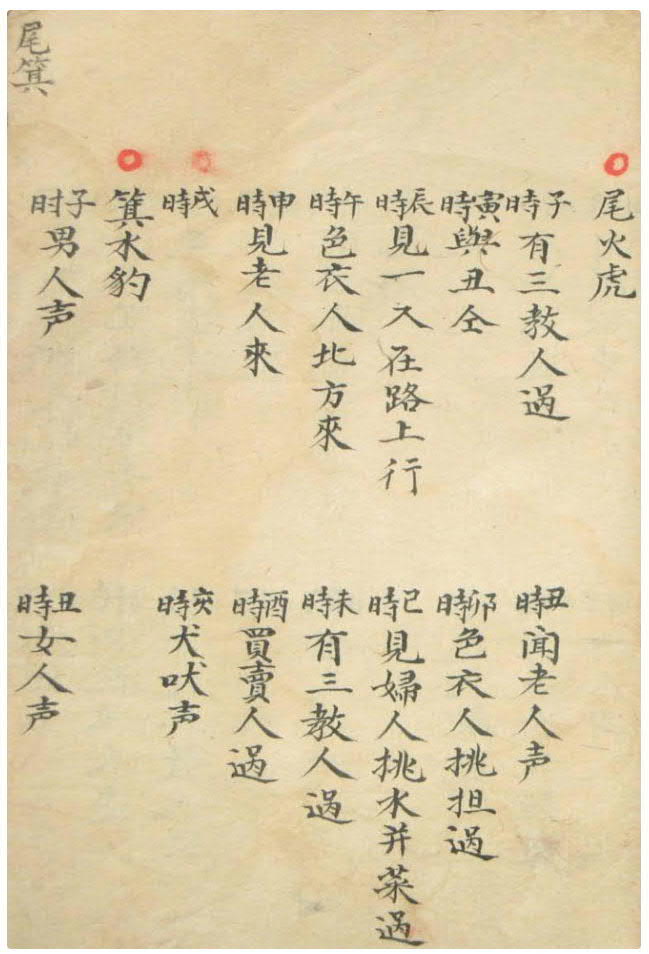 尾火虎
子時有三教人過
丑時聞老人声
寅時與丑仝
卯時色衣人挑担過
辰時見一人在路上行
巳時見婦人挑水并菜過
午時色衣人北方來
未時有三教人過
申時見老人來
酉時買賣人過
戌時
亥時犬吠声
箕水豹
子时男人声
丑時女人声
尾箕